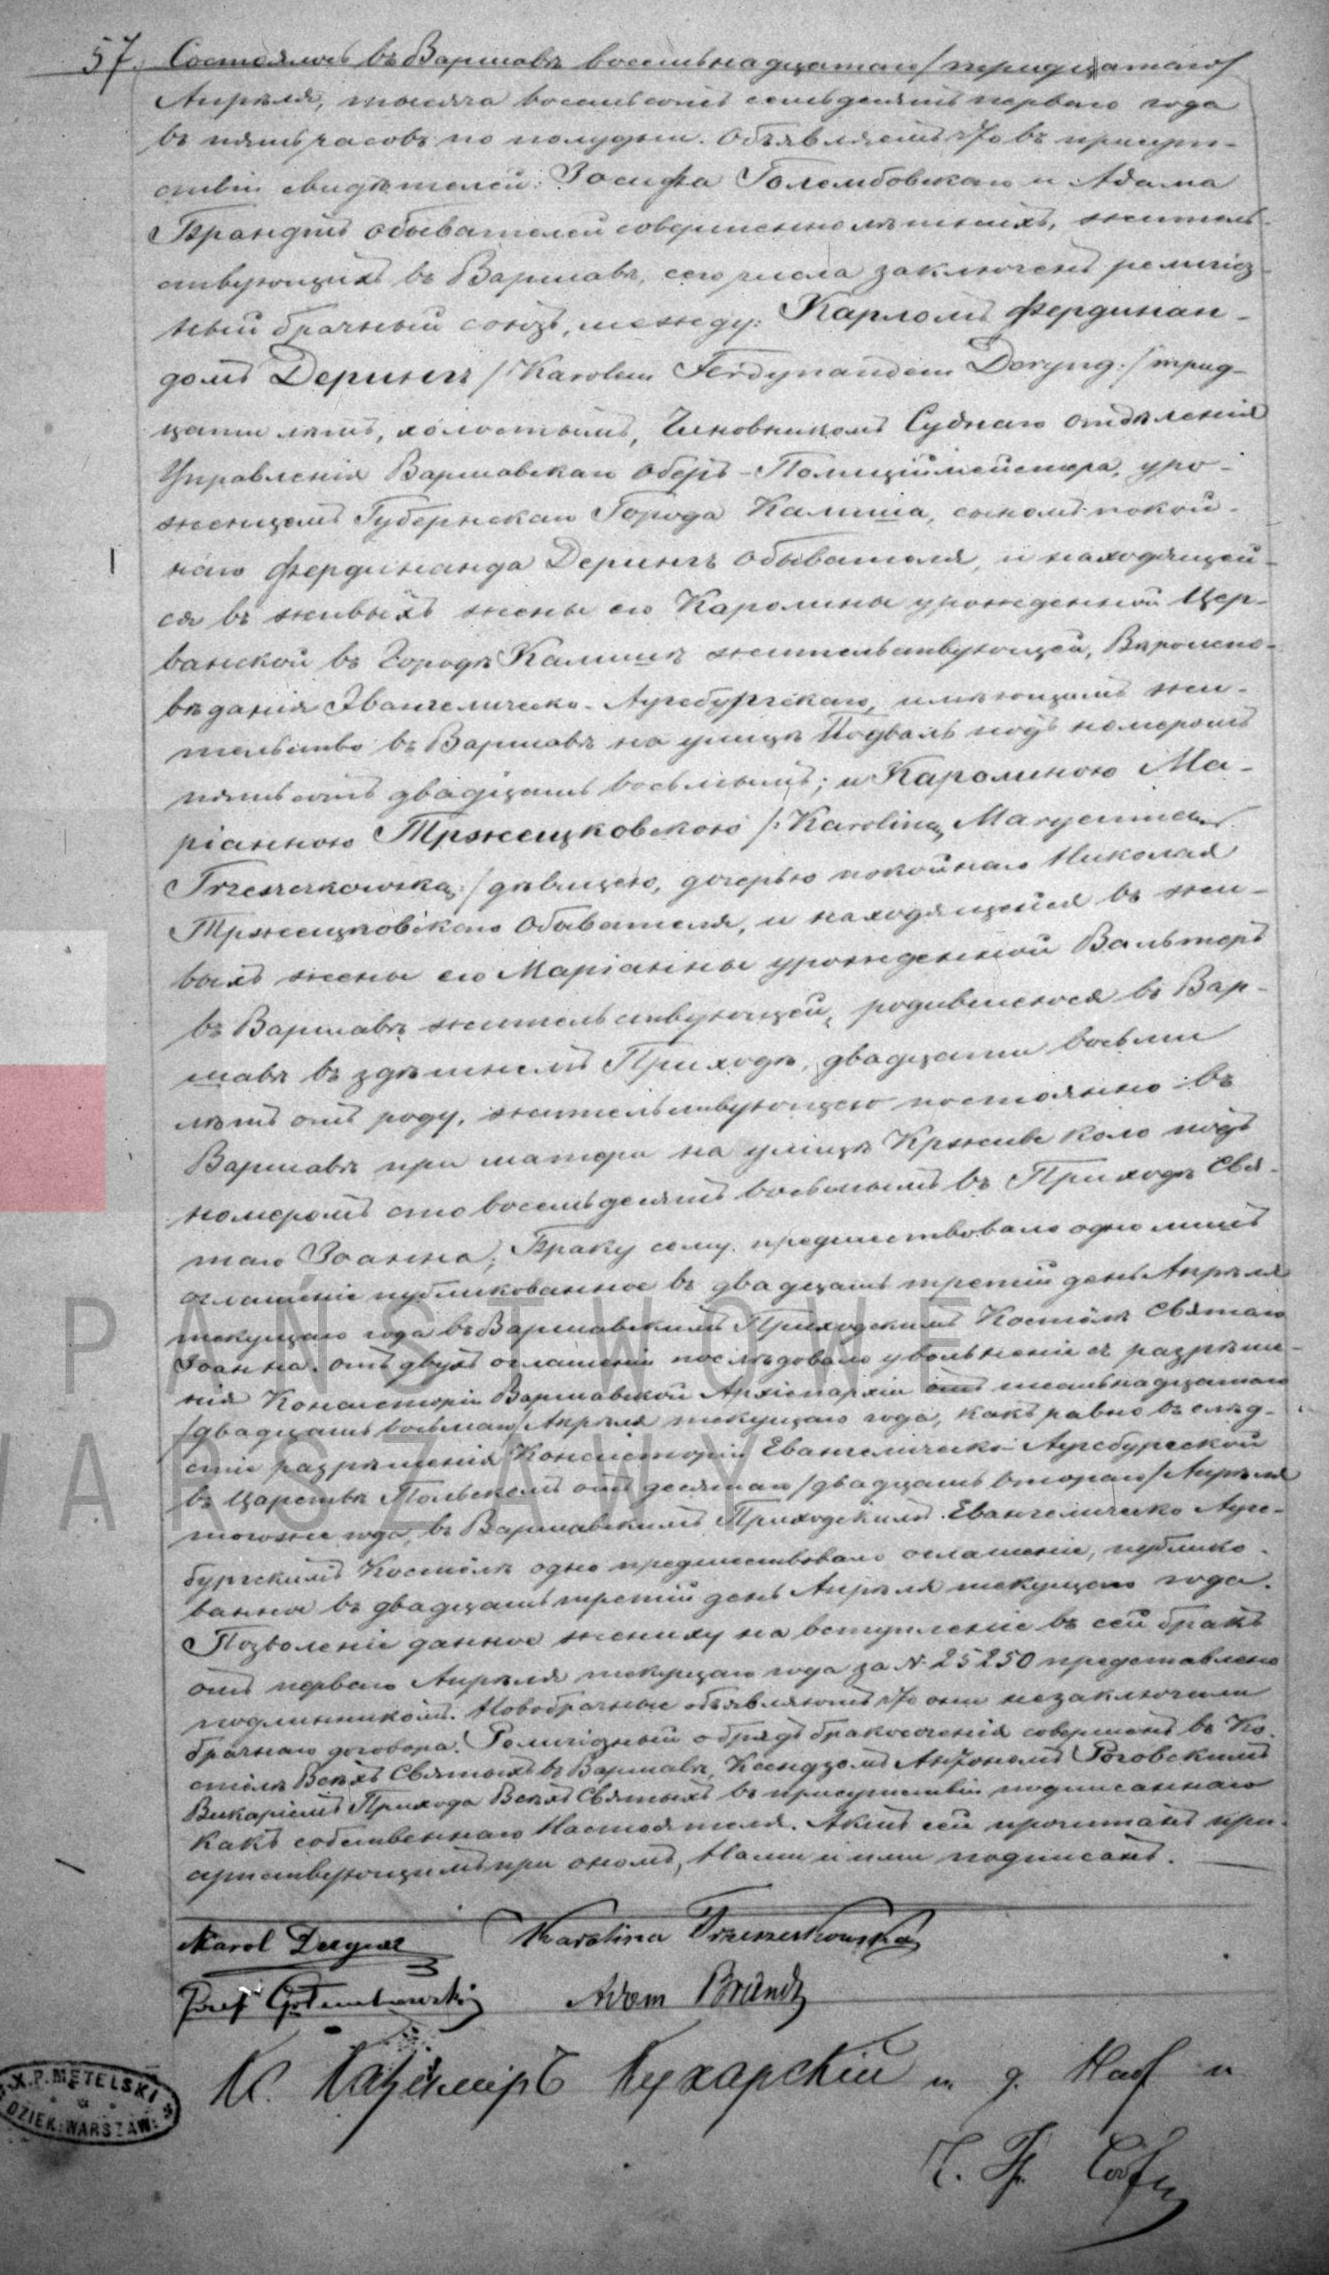 57. Состоялось въ Варшавѣ восемьнадцатаго /тридцатаго/
Апрѣля, тысяча восемьсотъ семьдесятъ перваго года
въ пять часовъ по полудни. Объявляемъ что въ присут-
ствіи свидѣтелей: Іосифа Голембовскаго и Адама
Брандтъ обывателей совершеннолѣтнихъ, житель-
ствующихъ въ Варшавѣ, сего числа заключенъ религіоз-
ный брачный союзъ, между: Карломъ Фердинан-
домъ Дерингъ /Karolem Ferdynandem Deryng:/ трид-
цати лѣтъ, холостымъ, Чиновникомъ Суднаго отдѣленія
Управленія Варшавскаго Оберъ-Полиціймейстера, уро-
женцемъ Губернскаго Города Калиша, сыномъ покой-
наго Фердинанда Дерингъ обывателя, и находящей-
ся въ живыхъ жены его Каролины урожденной Цер-
ванской въ Городѣ Калишѣ жительствующей, Вѣроиспо-
вѣданія Эвангелическо-Аугсбургскаго, имѣющимъ жи-
тельство въ Варшавѣ на улицѣ Подваль подъ номеромъ
пятьсотъ двадцать восьмымъ; и Каролиною Ма-
ріанною Тржещковскою /:Karoliną Maryanną
Trzeszczkowską:/ дѣвицею, дочерью покойнаго Николая
Тржещковскаго обывателя, и находящейся въ жи-
выхъ жены его Маріанны урожденной Вальтеръ
въ Варшавѣ жительствующей, родившеюся въ Вар-
шавѣ въ здѣшнемъ Приходѣ, двадцати восьми
лѣтъ отъ роду, жительствующею постоянно въ
Варшавѣ при матери на улицѣ Крживе Коло подъ
номеромъ сто восемьдесятъ восьмымъ въ Приходѣ Свя-
таго Іоанна; Браку сему предшествовало одно лишь
оглашеніе публикованное въ двадцать третій день Апрѣля
текущаго года въ Варшавскимъ Приходскимъ Костёлѣ Святаго
Іоанна. отъ двухъ оглашеній послѣдовало увольненіе съ разрѣше-
нія Консисторіи Варшавской Архіепархіи отъ шестьнадцатаго
/двадцать восьмаго/ Апрѣля текущаго года, какъ равно въ слѣд-
ствіе разрѣшенія Консисторіи Евангелическо-Аугсбургской
въ Царствѣ Польскомъ отъ десятаго /двадцать втораго/ Апрѣля
тогоже года, въ Варшавскимъ Приходскимъ Евангелическо Аугс-
бургскимъ Костёлѣ одно предшествовало оглашеніе, публико-
ванное въ двадцать третій день Апрѣля текущаго года.
Позволеніе данное жениху на вступленіе въ сей бракъ
отъ перваго Апрѣля текущаго года за № 25250 представлено
подлинникомъ. Новобрачные объявляютъ что они незаключили
брачнаго договора. Религіозный обрядъ бракосоченія совершенъ въ Ко-
стёлѣ Всѣхъ Святыхъ въ Варшавѣ, Ксендзомъ Антономъ Роговскимъ
Викаріемъ Прихода Всѣхъ Святыхъ въ присутствіи подписаннаго
какъ собственнаго Настоятеля. Актъ сей прочитанъ при-
сутствующимъ при ономъ, Нами и ими подписанъ.
Karol Deryng Karolina Trzeszczkowska
Józef Gołembowski Adam Brandt
К. Казимиръ Кухарскій и. д. Наст. и
Ч. Гр. Сост.
X.P. METELSKI
DZIEK: WARSZAW:
PAŃSTWOWE
WARSZAWY